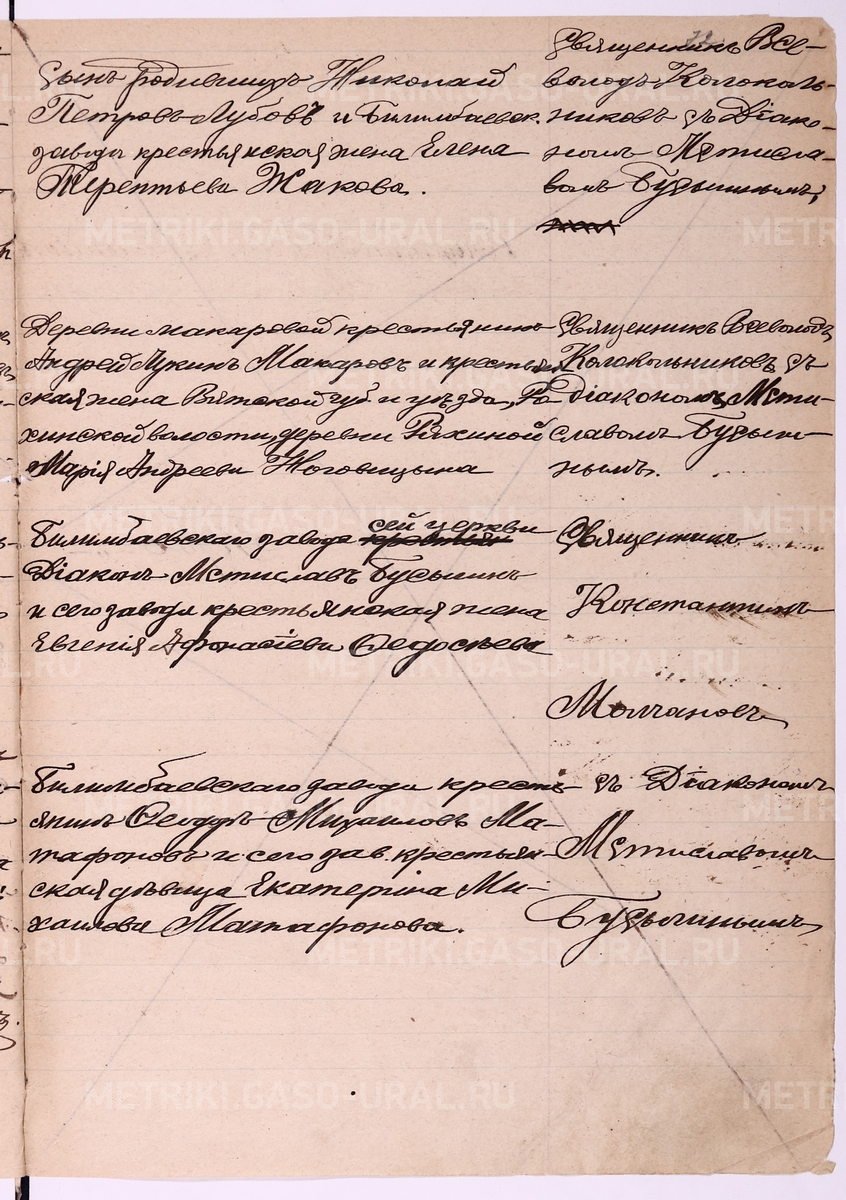 сынъ родившихъ Николай
Петровъ Лубовъ и Билимбаевск.
завода крестьянская жена Елена
Терентьева Жакова.
Священникъ Все-
володъ Колоколь-
никовъ съ Діако-
номъ Мстисла-
вомъ Бусыгинымъ,
Деревни Макаровой крестьянинъ
Андрей Лукинъ Макаровъ и крестьян
ская жена Вятской губ и уѣзда, Ра
хинской волости, деревни Рихиной
Марія Андреева Ноговицына
Священникъ Всеволодъ
Колокольниковъ съ
діакономъ Мсти-
славомъ Бусыги-
нымъ.
Билимбаевскаго завода сей церкви
Діаконъ Мстиславъ Бусыгинъ
и сего завода крестьянская жена
Евгенія Афонасіева Ѳедосѣева
Священникъ
Константинъ
Молчановъ
Билимбаевскаго завода кресть-
янинъ Ѳеодоръ Михаиловъ Ма-
тафоновъ и сего зав. крестьян-
ская дѣвица Екатерина Ми-
хаилова Матафонова.
съ Діакономъ
Мстиславомъ
Бусыгинымъ
METRIKI.GASO-URAL.RU